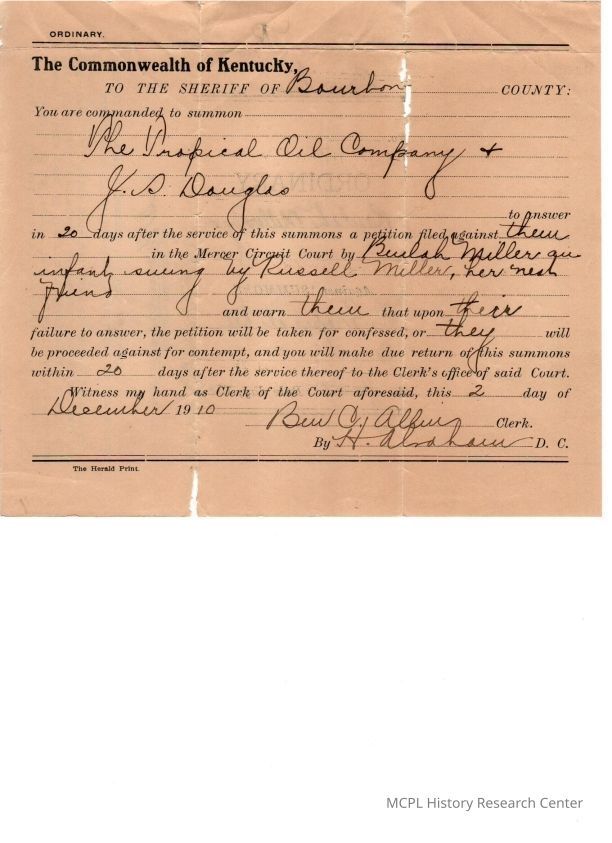 ORDINARY.
The Commonwealth of Kentucky,
TO THE SHERIFF OF Bourbon COUNTY:
You are commanded to summon
The Tropical Oil Company &
J. S. Douglas
to answer
in 20 days after the service of this summons a petition filed against them
in the Mercer Circuit Court by Beulah Miller an
infant suing by Russell Miller, her next
friend
and warn them that upon their
failure to answer, the petition will be taken for confessed, or they will
be proceeded against for contempt, and you will make due return of this summons
within 20 days after the service thereof to the Clerk's office of said Court.
Witness my hand as Clerk of the Court aforesaid, this 2 day of
December 1910
Ben C. Allin Clerk.
By H. Abraham D. C.
The Herald Print.
MCPL History Research Center